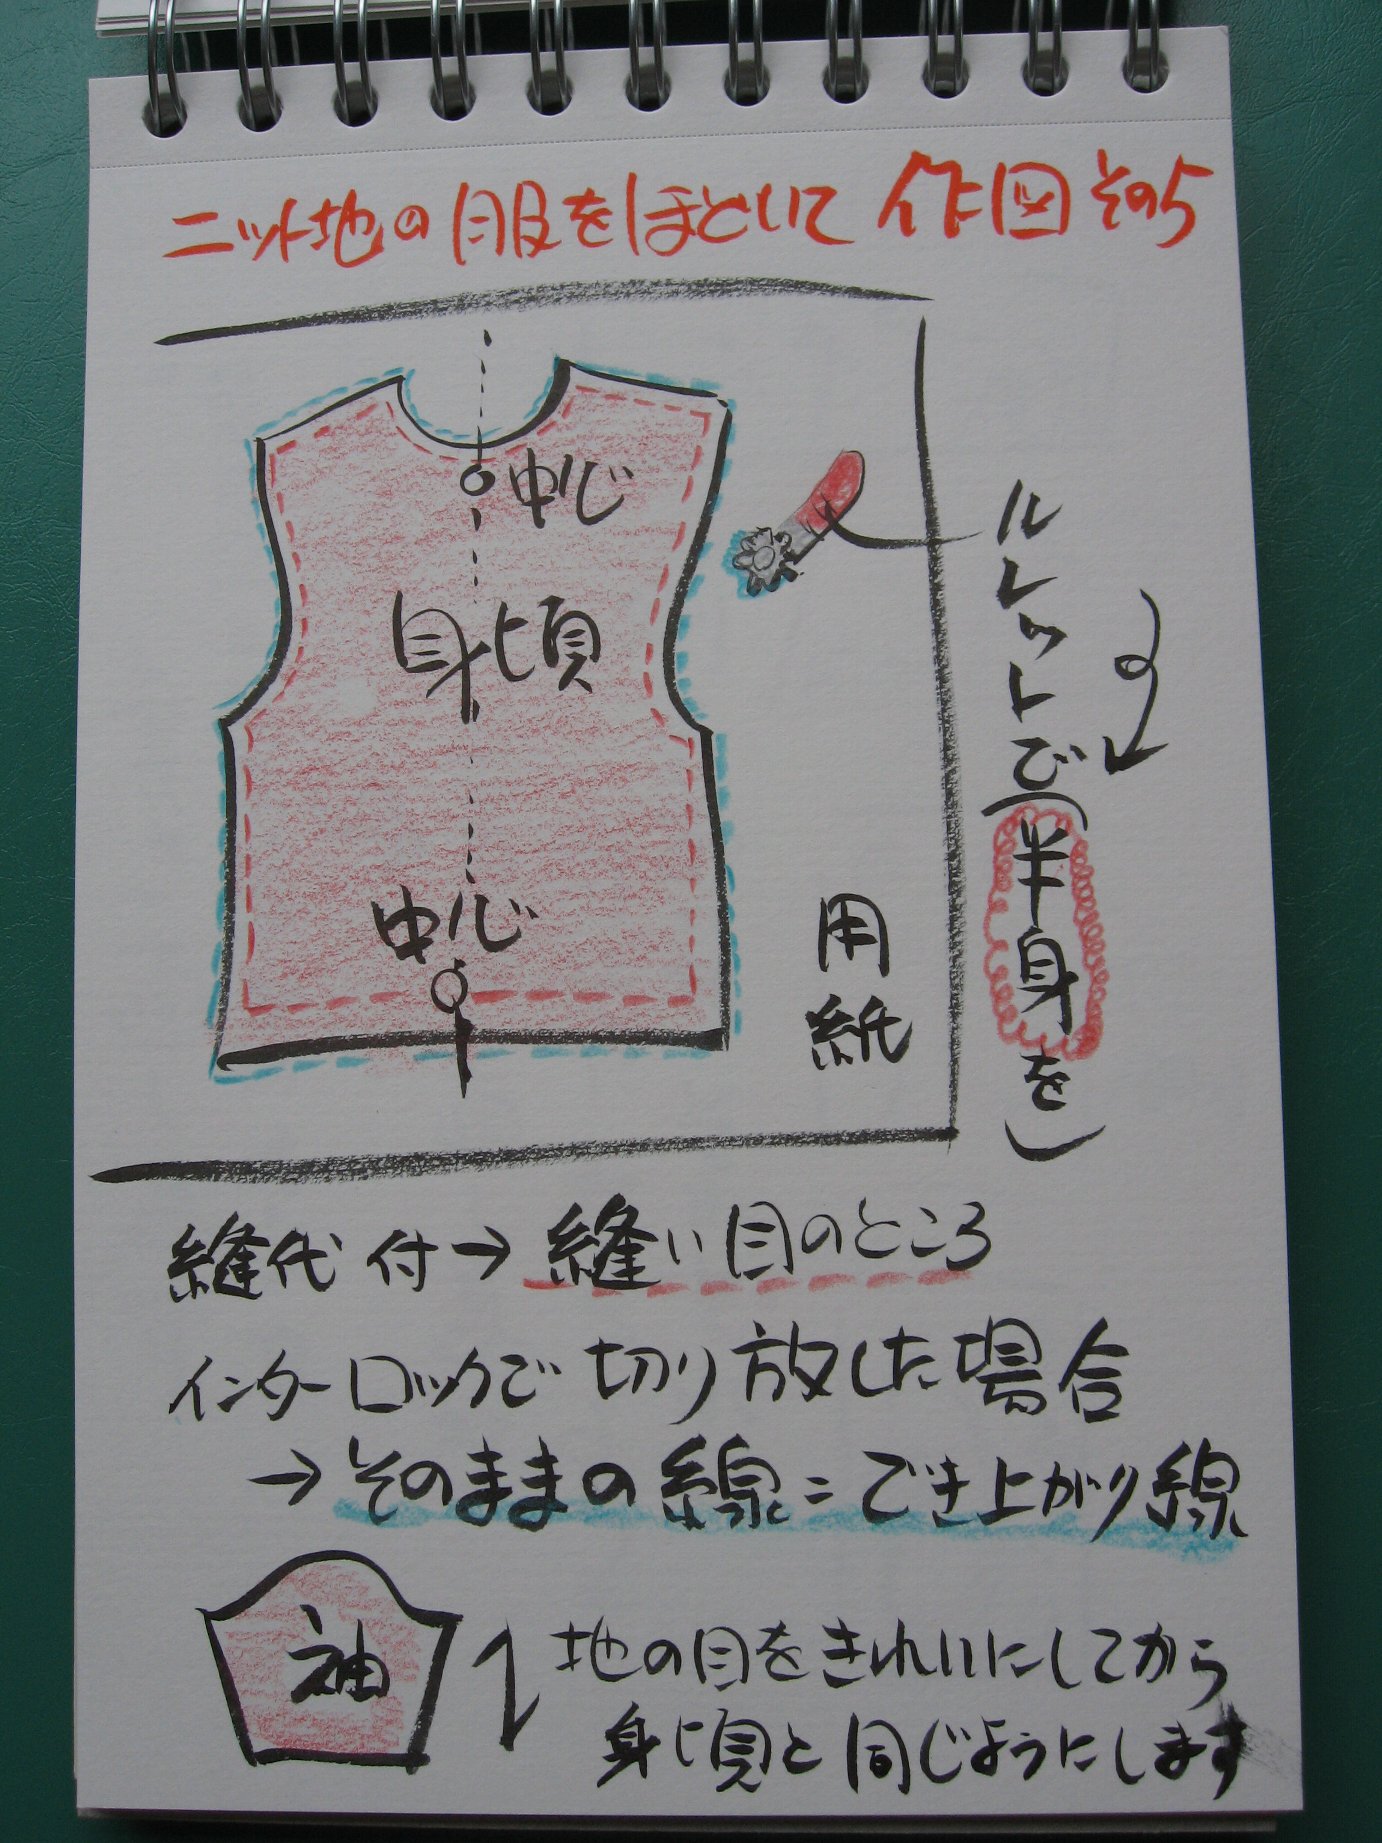 ニット地の服をほどいて 作図 その5
中心
身頃
中心
用紙
ルレットで(半身を)
縫代付→縫い目のところ
インターロックで切り放した場合
→そのままの線=でき上がり線
袖
地の目をきれいにしてから
身頃と同じようにします